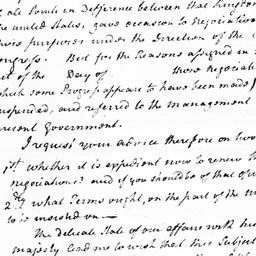 of Points in Difference between that Kingdom
the united States, gave occasion to negotiations
those purposes under the Direction of the
Congress. But for the Reasons assigned in
of the Day of those negotia
which some Progress appears to have been made)
suspended, and referred to the management
present Government.
I request your advice therefore on two
1st whether it is expedient now to renew th
negotiations? and if you should be of that op
2dly what Terms ought, on the part of the un
to be insisted on—
The delicate State of our affairs with his
majesty lead me to wish that this Subject